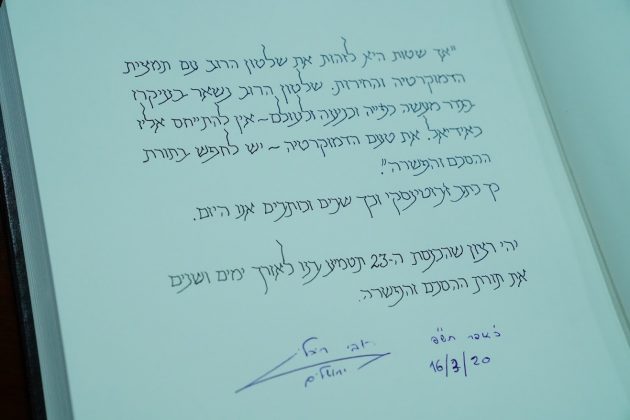 "אך שטות היא לזהות את שלטון הרוב עם תמצית
הדמוקרטיה והחירות. שלטון הרוב נשאר בעיקרו
בגדר מעשה כפייה וכניעה ולעולם ~ אין להתייחס אליו
כאידיאל. את טעם הדמוקרטיה ~ יש לחפש בתורת
ההסכם והפשרה".
כך כתב ז'בוטינסקי וכך שנים וכותבים אנו היום.
יהי רצון שהכנסת ה-23 תטמיע בנו לאורך ימים ושנים
את תורת ההסכם והפשרה.
כ' אדר תש"פ
ירושלים
16/3/20